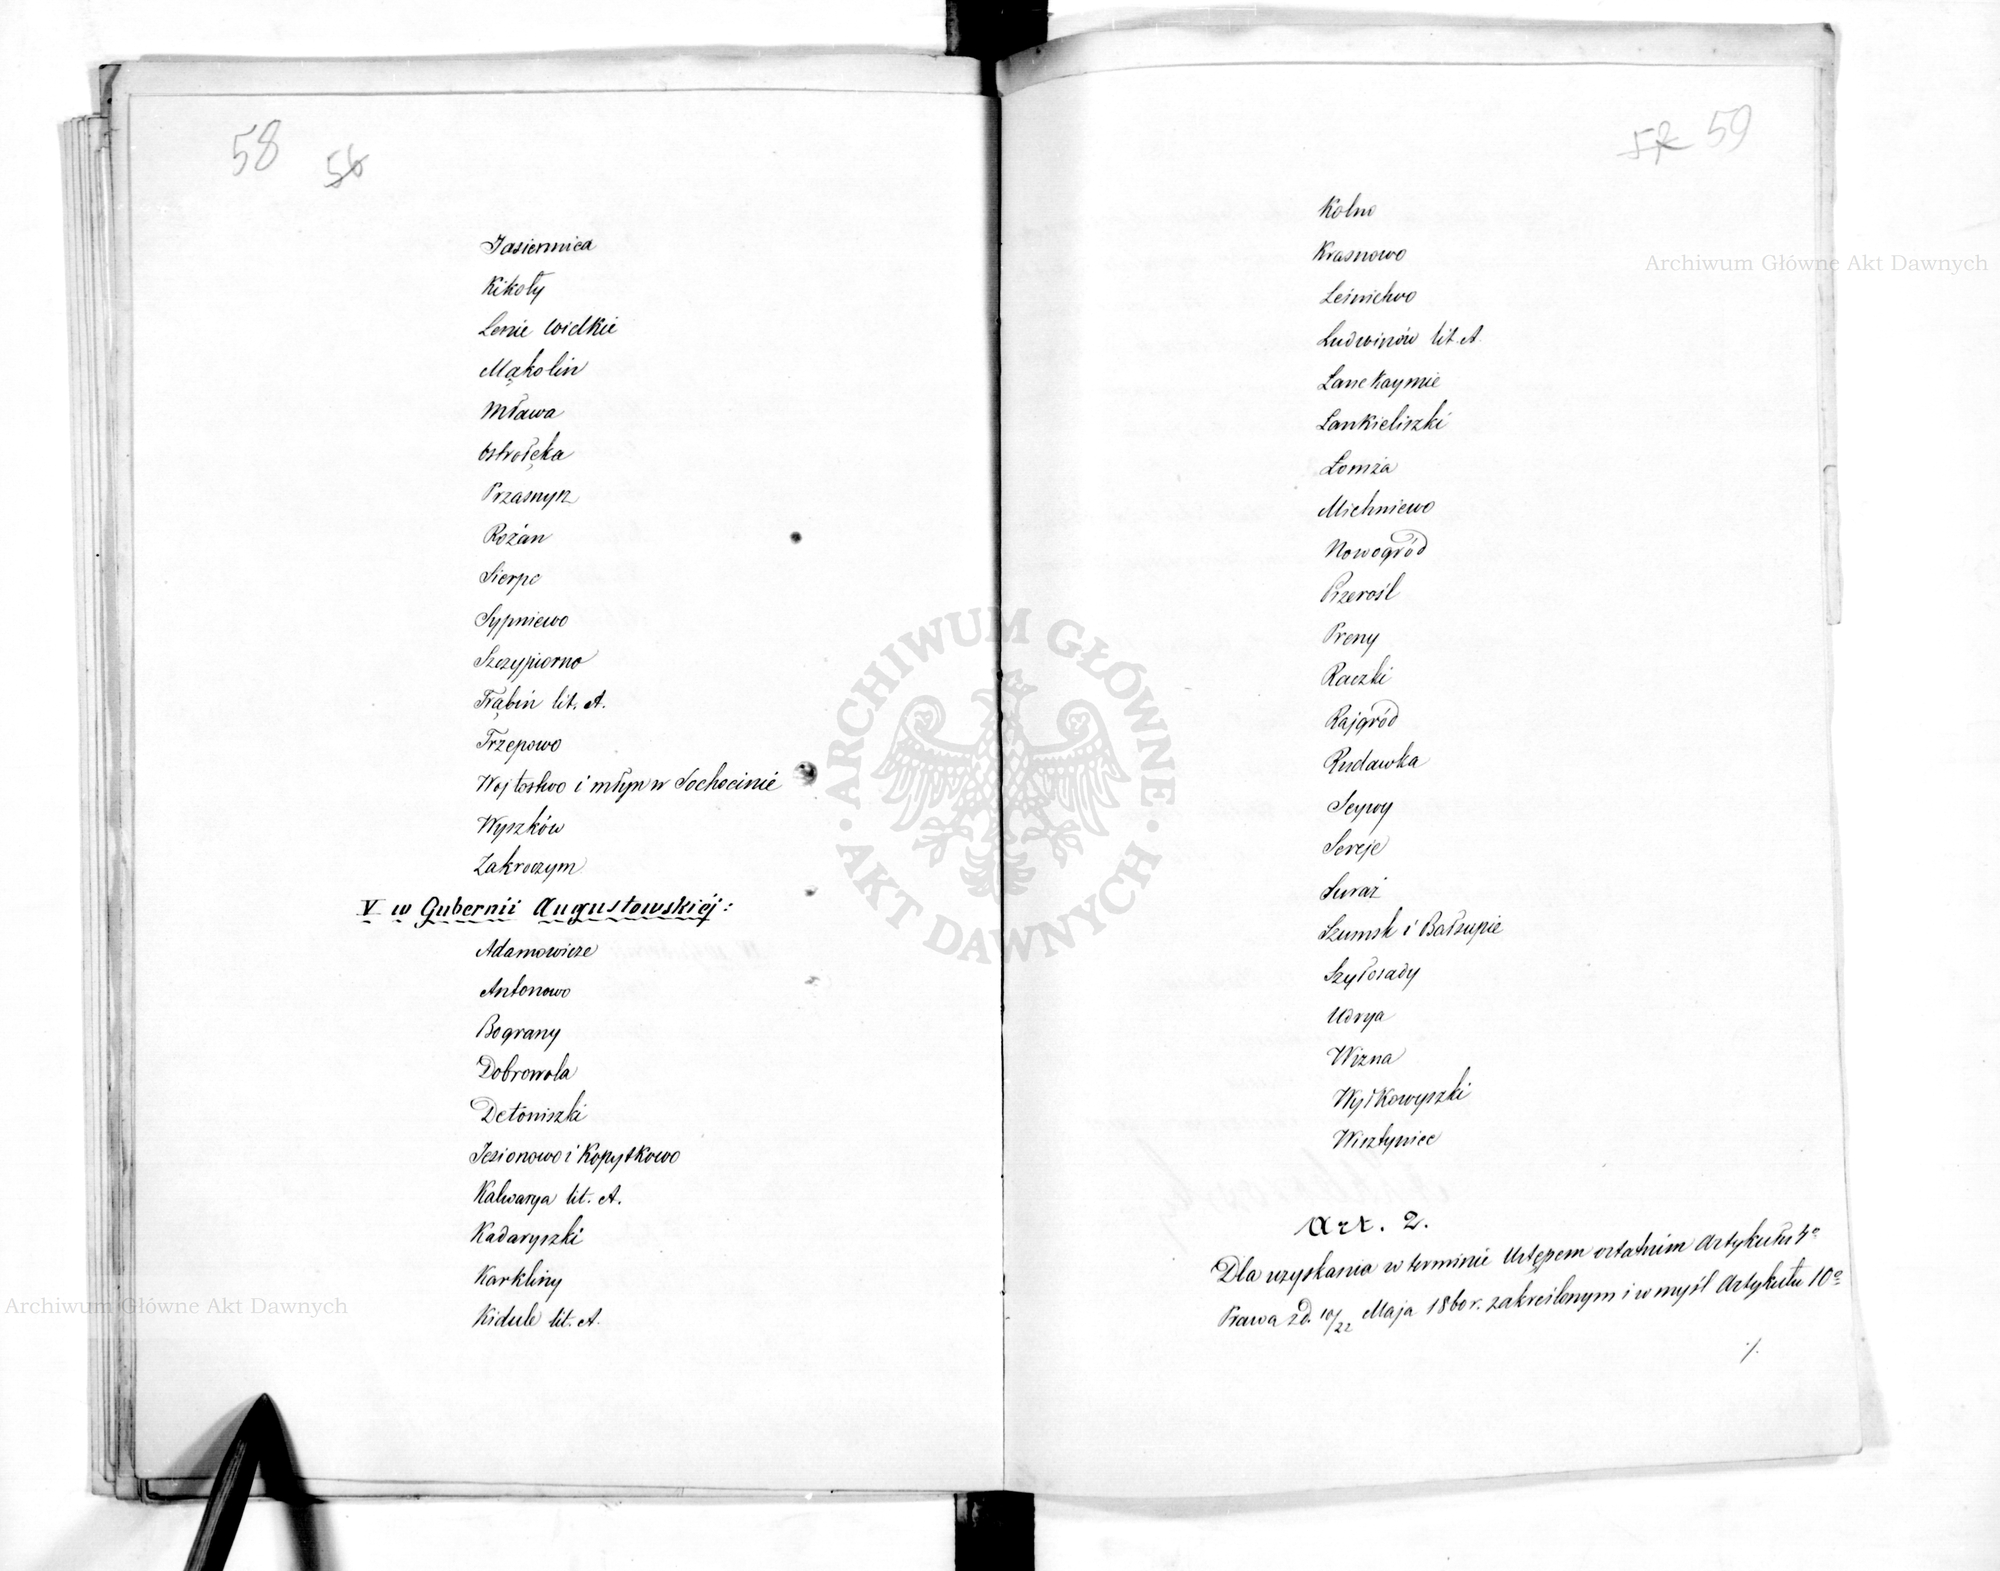 58 56
Jasiennica
Kikoły
Lenie Wielkie
Mąkolin
Mława
Ostrołęka
Przasnysz
Rożan
Sierpc
Sypniewo
Szczypiorno
Trąbin lit. A.
Trzepowo
Wojtostwo i młyn w Sochocinie
Wyszków
Zakroczym
V w Gubernii Augustowskiéj:
Adamowicze
Antonowo
Bograny
Dobrowola
Detoniszki
Jesionowo i Kopytkowo
Kalwarya lit. A.
Kadaryszki
Karkliny
Kidule lit. A.
59
Kolno
Krasnowo
Leśnictwo
Ludwinów lit. A.
Lankieliszki
Łomża
Michniewo
Nowogród
Przerośl
Preny
Raczki
Rajgród
Rudawka
Seywy
Sereje
Suraż
Szumsk i Bałsupie
Szyłosady
Udrya
Wizna
Wyłkowyszki
Wisztyniec
Art. 2.
Dla uzyskania w terminie Ustępem ostatnim Artykułu 4º
Prawa z d. 10/22 Maja 1860 r. zakreślonym i w myśl Artykułu 10º
./.
Archiwum Główne Akt Dawnych
Archiwum Główne Akt Dawnych
ARCHIWUM GŁÓWNE · AKT DAWNYCH ·